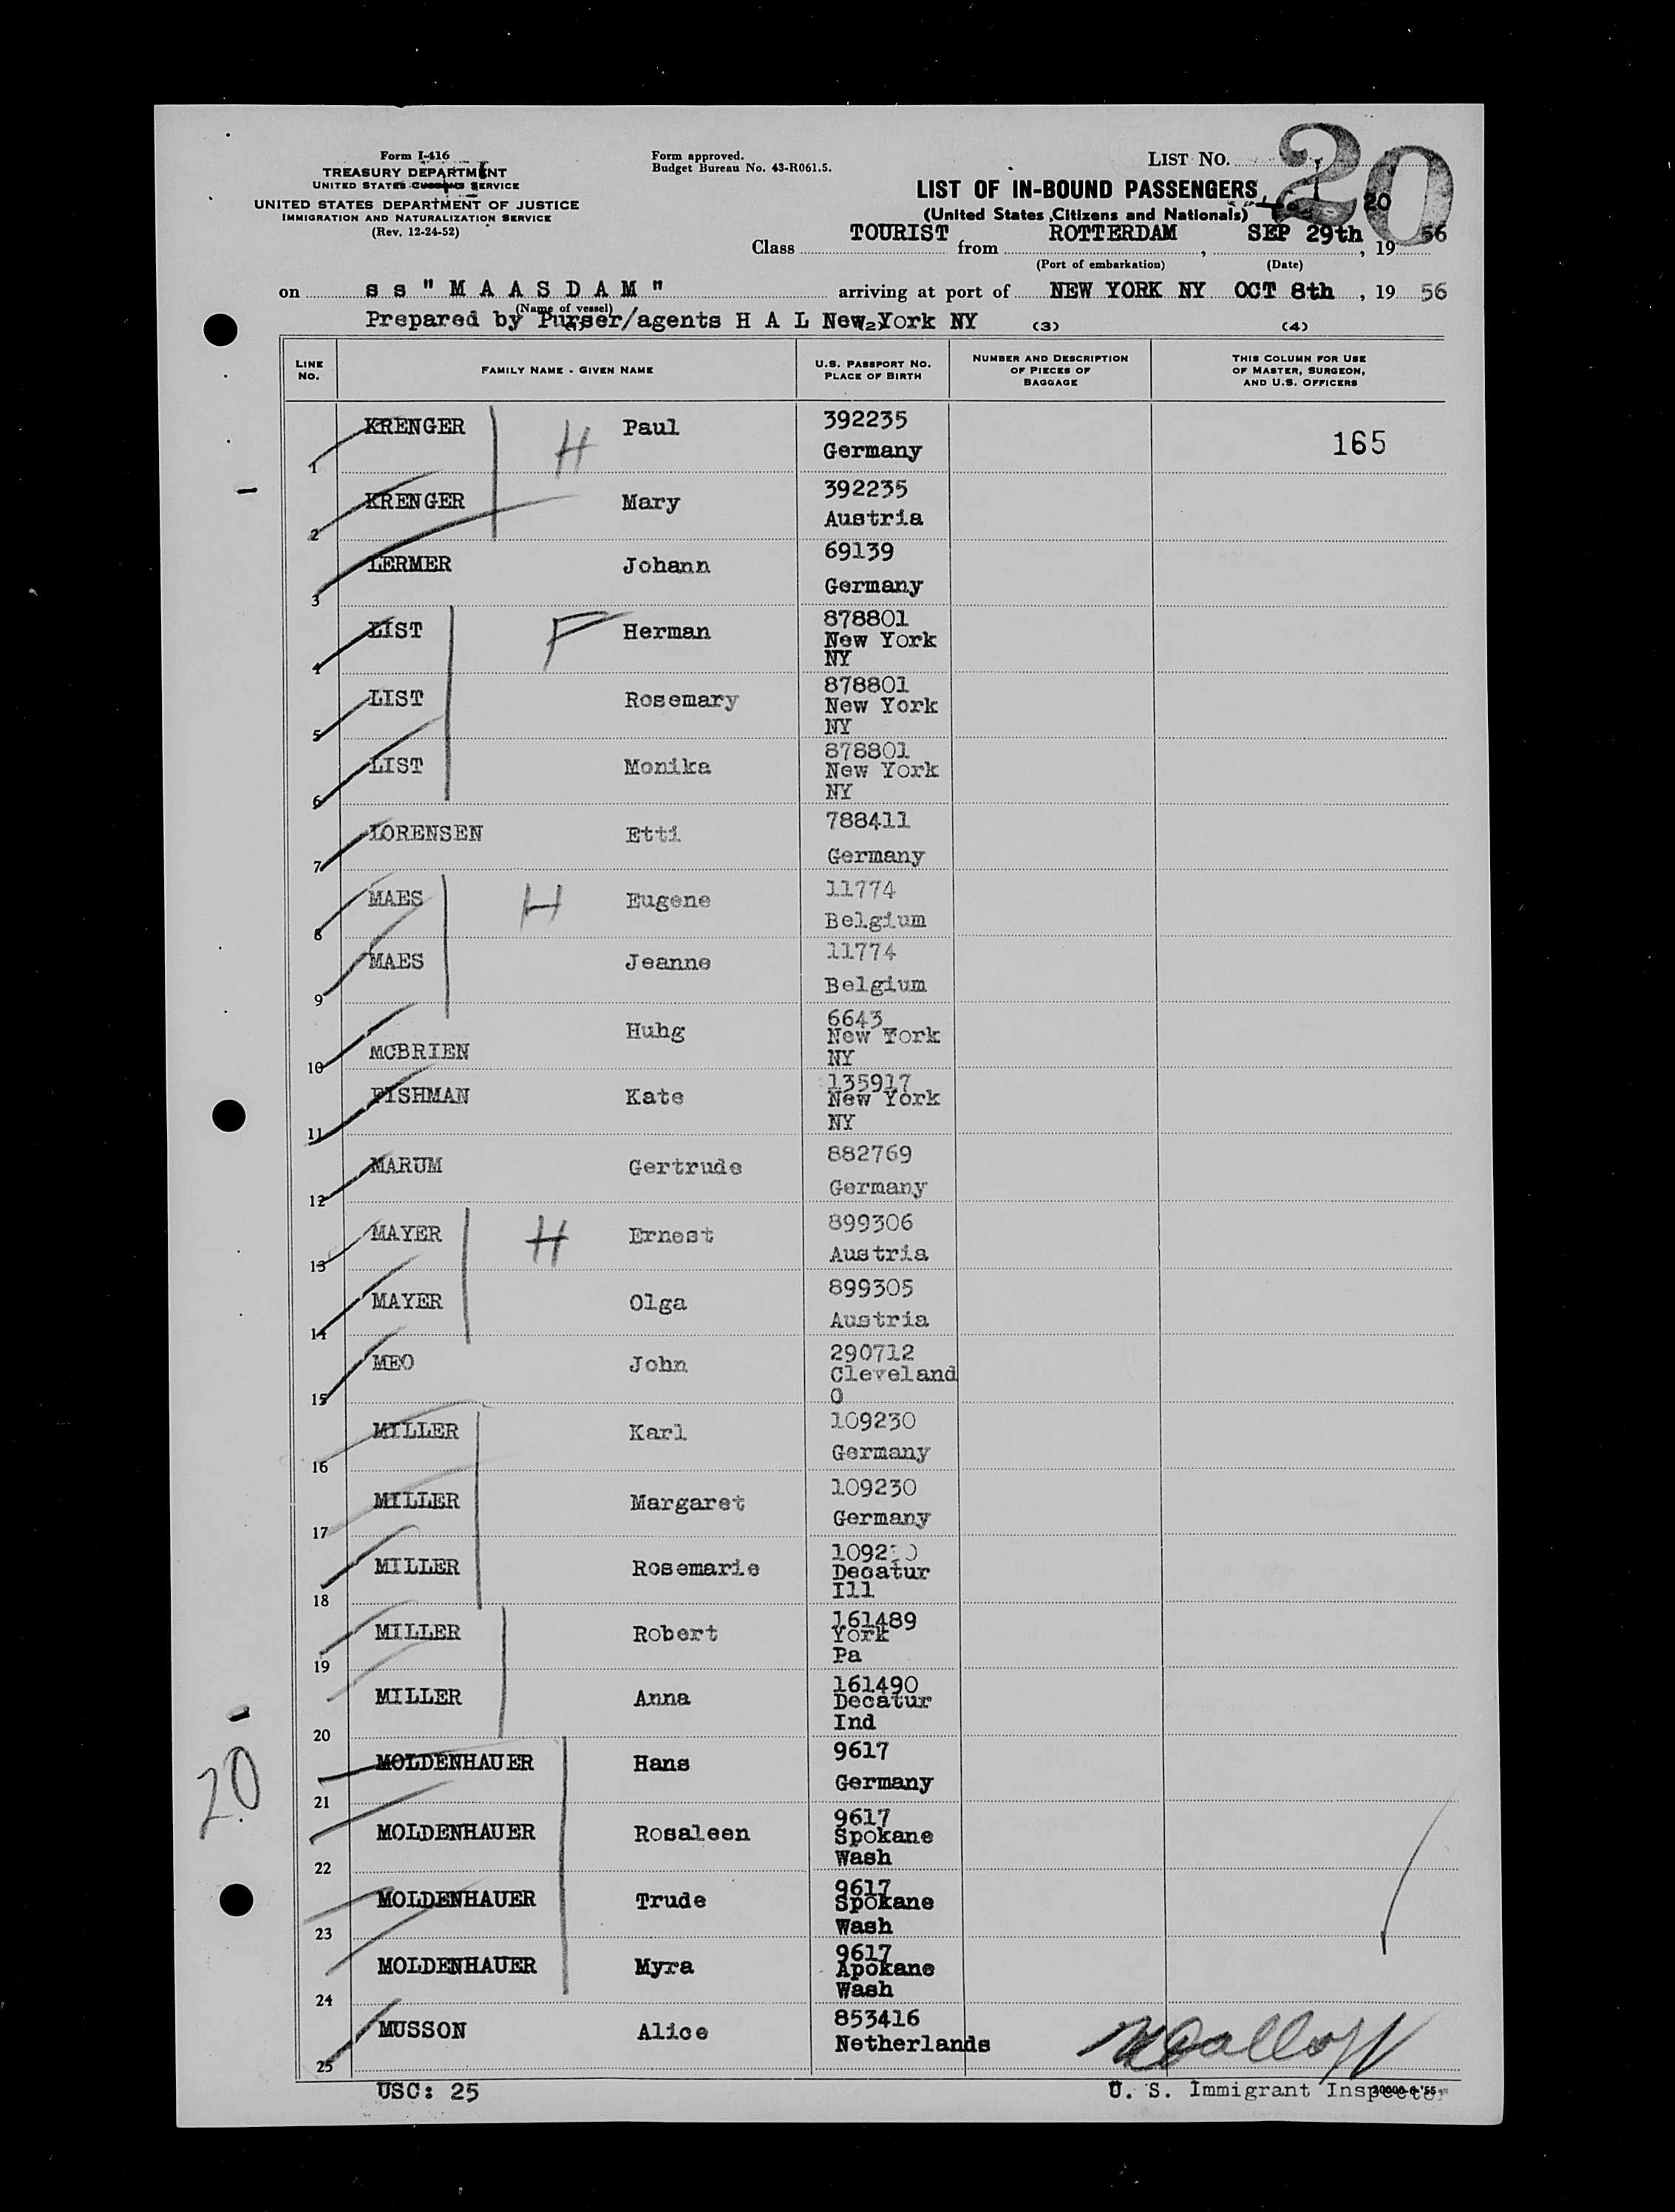 Form I-416
TREASURY DEPARTMENT
UNITED STATES CUSTOMS SERVICE
UNITED STATES DEPARTMENT OF JUSTICE
IMMIGRATION AND NATURALIZATION SERVICE
(Rev. 12-24-52)
Form approved.
Budget Bureau No. 43-R061.5.
LIST NO. 20
LIST OF IN-BOUND PASSENGERS
(United States Citizens and Nationals) 20
Class TOURIST from ROTTERDAM, SEP 29th, 19 56
(Port of embarkation) (Date)
on s s " M A A S D A M " arriving at port of NEW YORK NY OCT 8th, 19 56
(Name of vessel)
Prepared by Purser/agents H A L New York NY
(2) (3) (4)
LINE NO. FAMILY NAME - GIVEN NAME U.S. PASSPORT NO. PLACE OF BIRTH NUMBER AND DESCRIPTION OF PIECES OF BAGGAGE THIS COLUMN FOR USE OF MASTER, SURGEON, AND U.S. OFFICERS
1 KRENGER H Paul 392235 Germany 165
2 KRENGER Mary 392235 Austria
3 LERMER Johann 69139 Germany
4 LIST F Herman 878801 New York NY
5 LIST Rosemary 878801 New York NY
6 LIST Monika 878801 New York NY
7 LORENSEN Etti 788411 Germany
8 MAES H Eugene 11774 Belgium
9 MAES Jeanne 11774 Belgium
10 MCBRIEN Huhg 6643 New York NY
11 FISHMAN Kate 135917 New York NY
12 MARUM Gertrude 882769 Germany
13 MAYER H Ernest 899306 Austria
14 MAYER Olga 899305 Austria
15 MEO John 290712 Cleveland O
16 MILLER Karl 109230 Germany
17 MILLER Margaret 109230 Germany
18 MILLER Rosemarie 109230 Decatur Ill
19 MILLER Robert 161489 York Pa
20 MILLER Anna 161490 Decatur Ind
21 MOLDENHAUER Hans 9617 Germany
22 MOLDENHAUER Rosaleen 9617 Spokane Wash
23 MOLDENHAUER Trude 9617 Spokane Wash
24 MOLDENHAUER Myra 9617 Apokane Wash
25 MUSSON Alice 853416 Netherlands
20
USC: 25
U. S. Immigrant Inspector